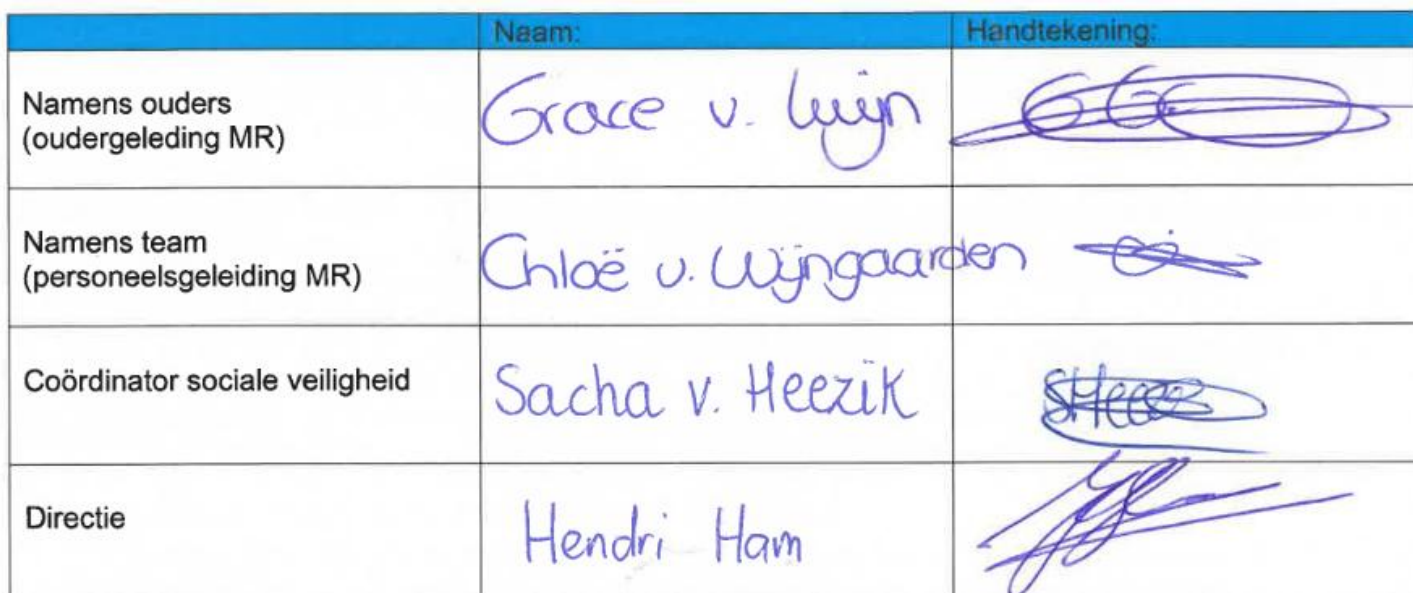 Naam: Handtekening:
Namens ouders
(oudergeleding MR)
Grace v.
Namens team
(personeelsgeleiding MR)
Chloë v. Wijngaarden
Coördinator sociale veiligheid
Sacha v. Heezik
Directie
Hendri Ham